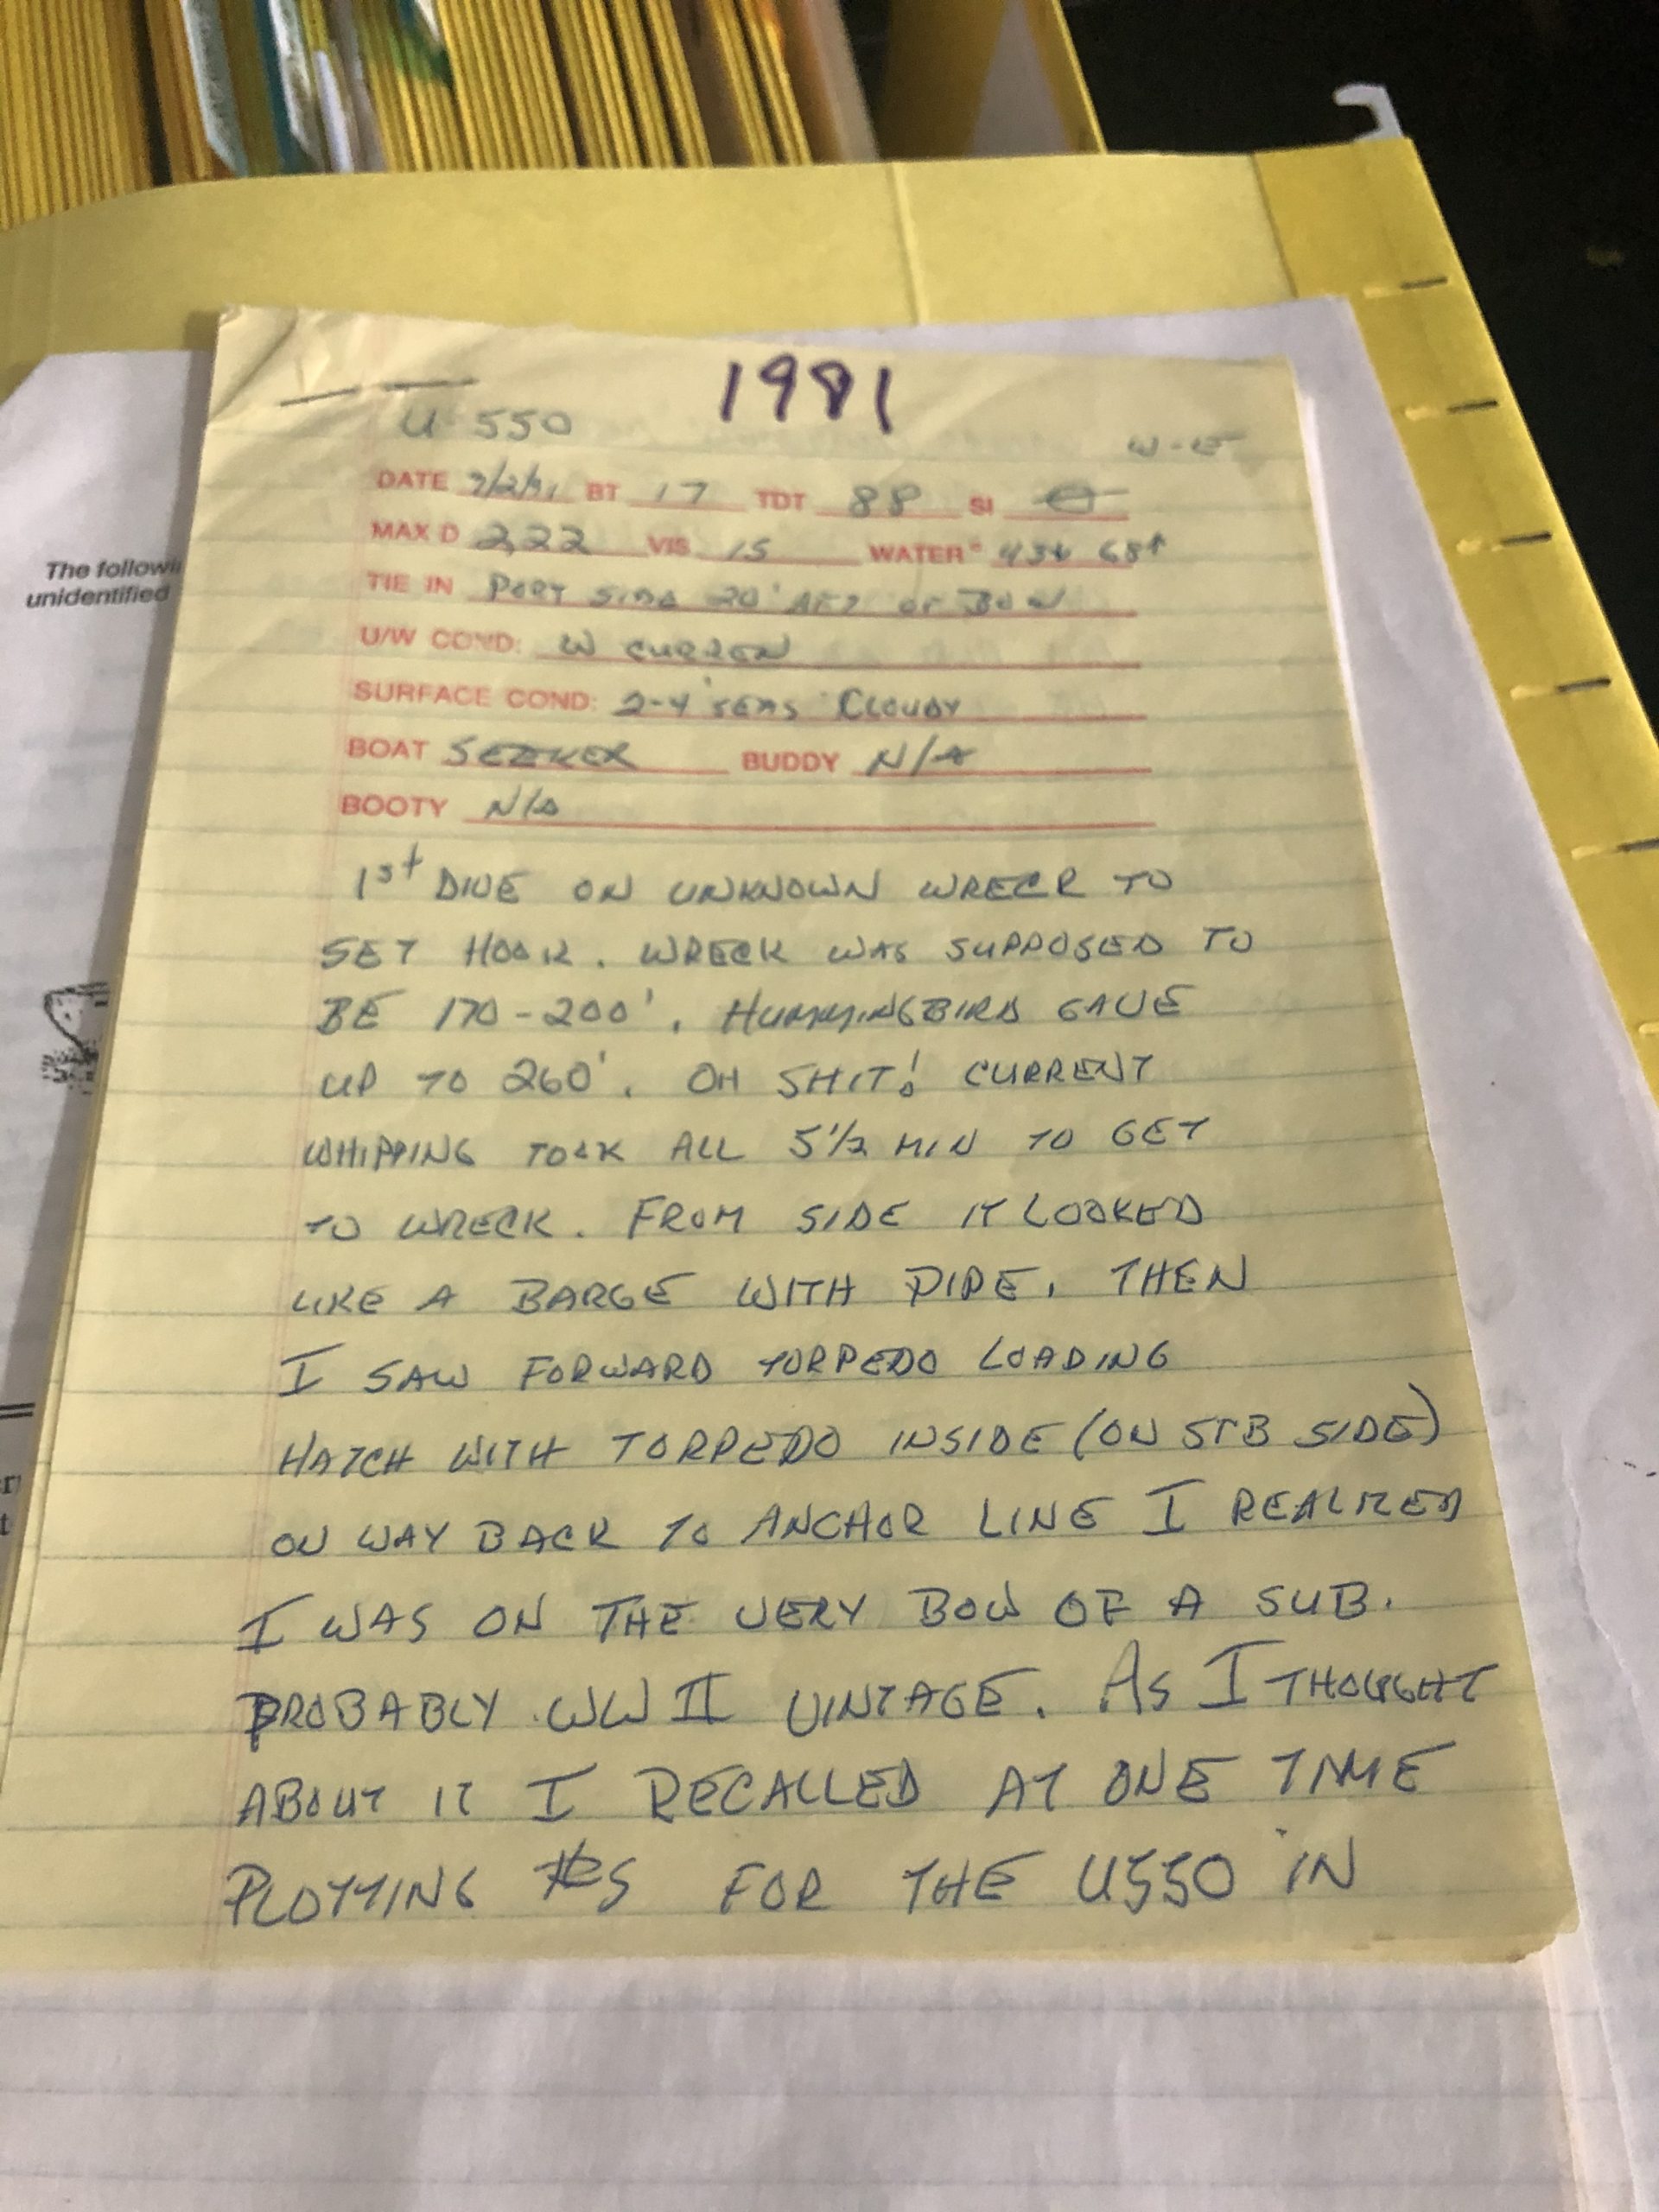 1991
U-550
W-E
DATE 9/2/91 BT 17 TDT 88 SI 0
MAX D 222 VIS 15 WATER° 43↓ 68↑
TIE IN PORT SIDE 20' AFT OF BOW
U/W COND: W CURREN
SURFACE COND: 2-4' SEAS CLOUDY
BOAT SEEKER BUDDY N/A
BOOTY N/A
The followi
unidentified
1st DIVE ON UNKNOWN WRECK TO
SET HOOK. WRECK WAS SUPPOSED TO
BE 170-200'. HUMMINGBIRD GAVE
UP TO 260'. OH SHIT! CURRENT
WHIPPING TOOK ALL 5 1/2 MIN TO GET
TO WRECK. FROM SIDE IT LOOKED
LIKE A BARGE WITH PIPE. THEN
I SAW FORWARD TORPEDO LOADING
HATCH WITH TORPEDO INSIDE (ON STB SIDE)
ON WAY BACK TO ANCHOR LINE I REALIZED
I WAS ON THE VERY BOW OF A SUB.
PROBABLY WW II VINTAGE. AS I THOUGHT
ABOUT IT I RECALLED AT ONE TIME
PLOTTING #S FOR THE U550 IN